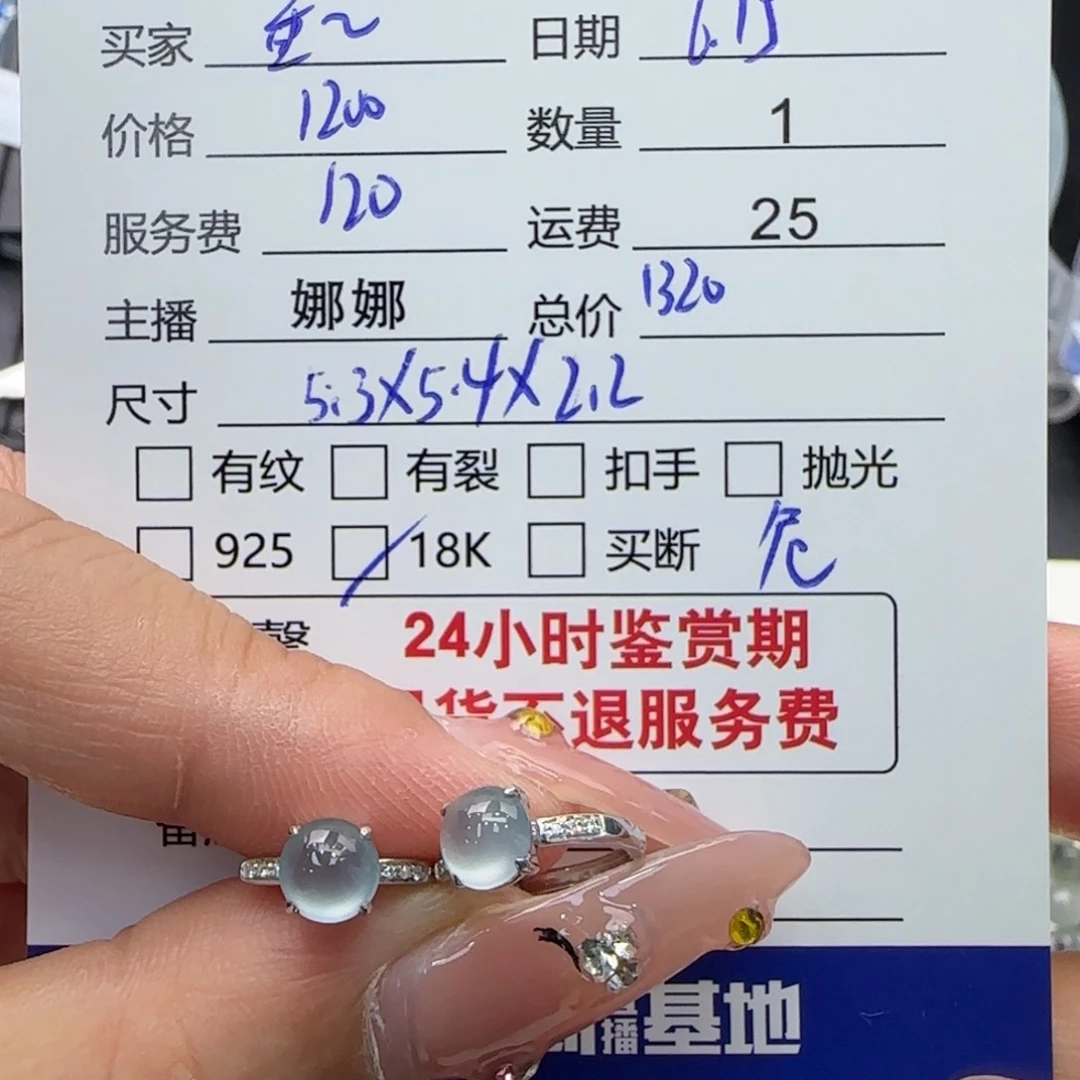 买家 日期 6.15
价格 1200 数量 1
服务费 120 运费 25
主播 娜娜 总价 1320
尺寸 5.3X5.4X2.2
有纹 有裂 扣手 抛光
925 18K 买断
24小时鉴赏期
货不退服务费
播基地